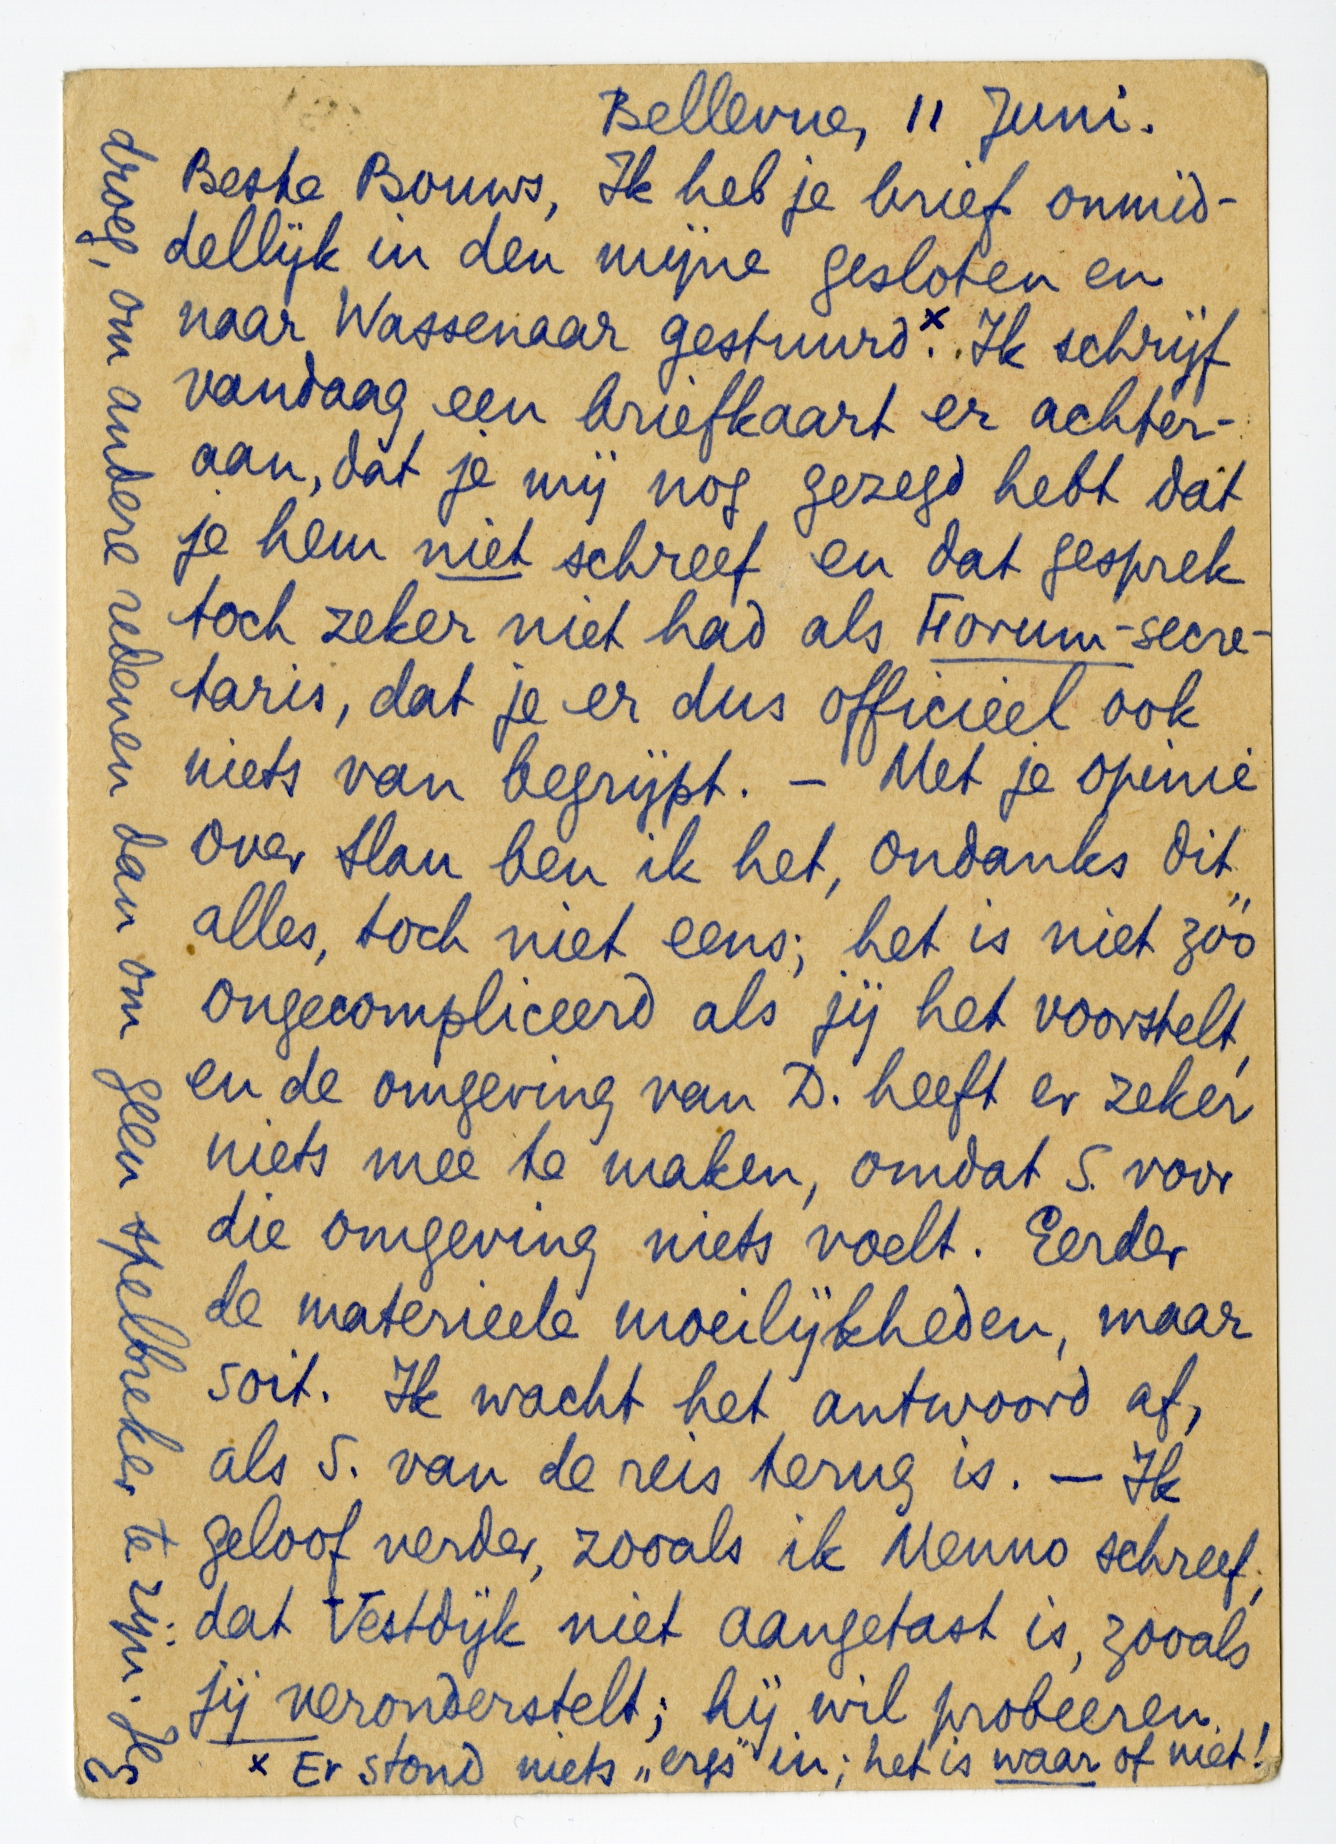 Bellevue, 11 Juni.
Beste Bouws, Ik heb je brief onmid-
dellijk in den mijne gesloten en
naar Wassenaar gestuurd.ˣ Ik schrijf
vandaag een briefkaart er achter-
aan, dat je mij nog gezegd hebt dat
je hem niet schreef en dat gesprek
toch zeker niet had als Forum-secre-
taris, dat je er dus officieel ook
niets van begrijpt. — Met je opinie
over Slau ben ik het, ondanks dit
alles, toch niet eens; het is niet zóó
ongecompliceerd als jij het voorstelt,
en de omgeving van D. heeft er zeker
niets mee te maken, omdat S. voor
die omgeving niets voelt. Eerder
de materieele moeilijkheden, maar
soit. Ik wacht het antwoord af,
als S. van de reis terug is. — Ik
geloof verder, zooals ik Menno schreef,
dat Vestdijk niet aangetast is, zooals
jij veronderstelt; hij wil probeeren
x Er stond niets „ergs" in; het is waar of niet!
droeg, om andere redenen dan om geen spelbreker te zijn. Je